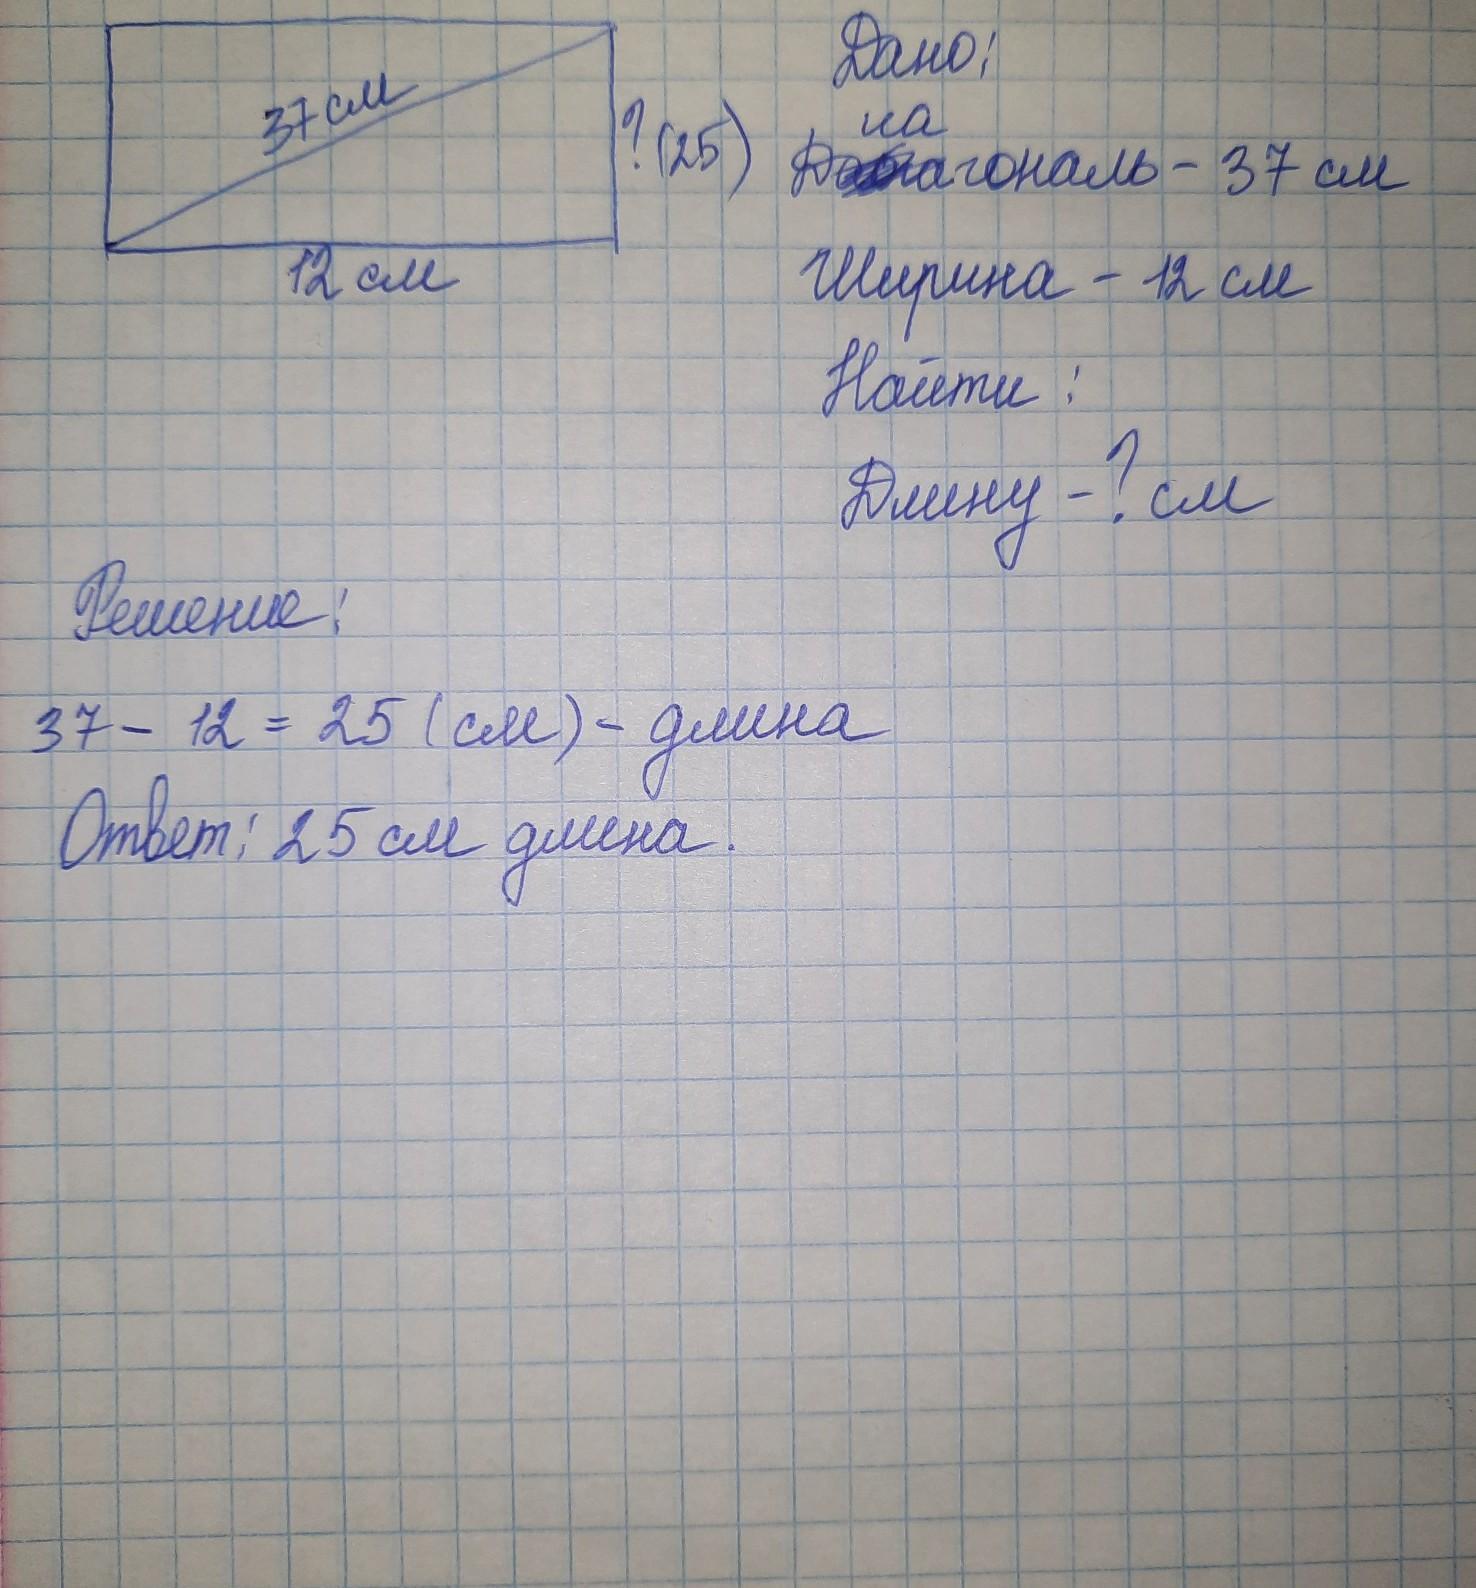 37 см
? (25)
12 см
Дано:
иа
Диагональ - 37 см
Ширина - 12 см
Найти:
Длину - ? см
Решение:
37 - 12 = 25 (см) - длина
Ответ: 25 см длина.